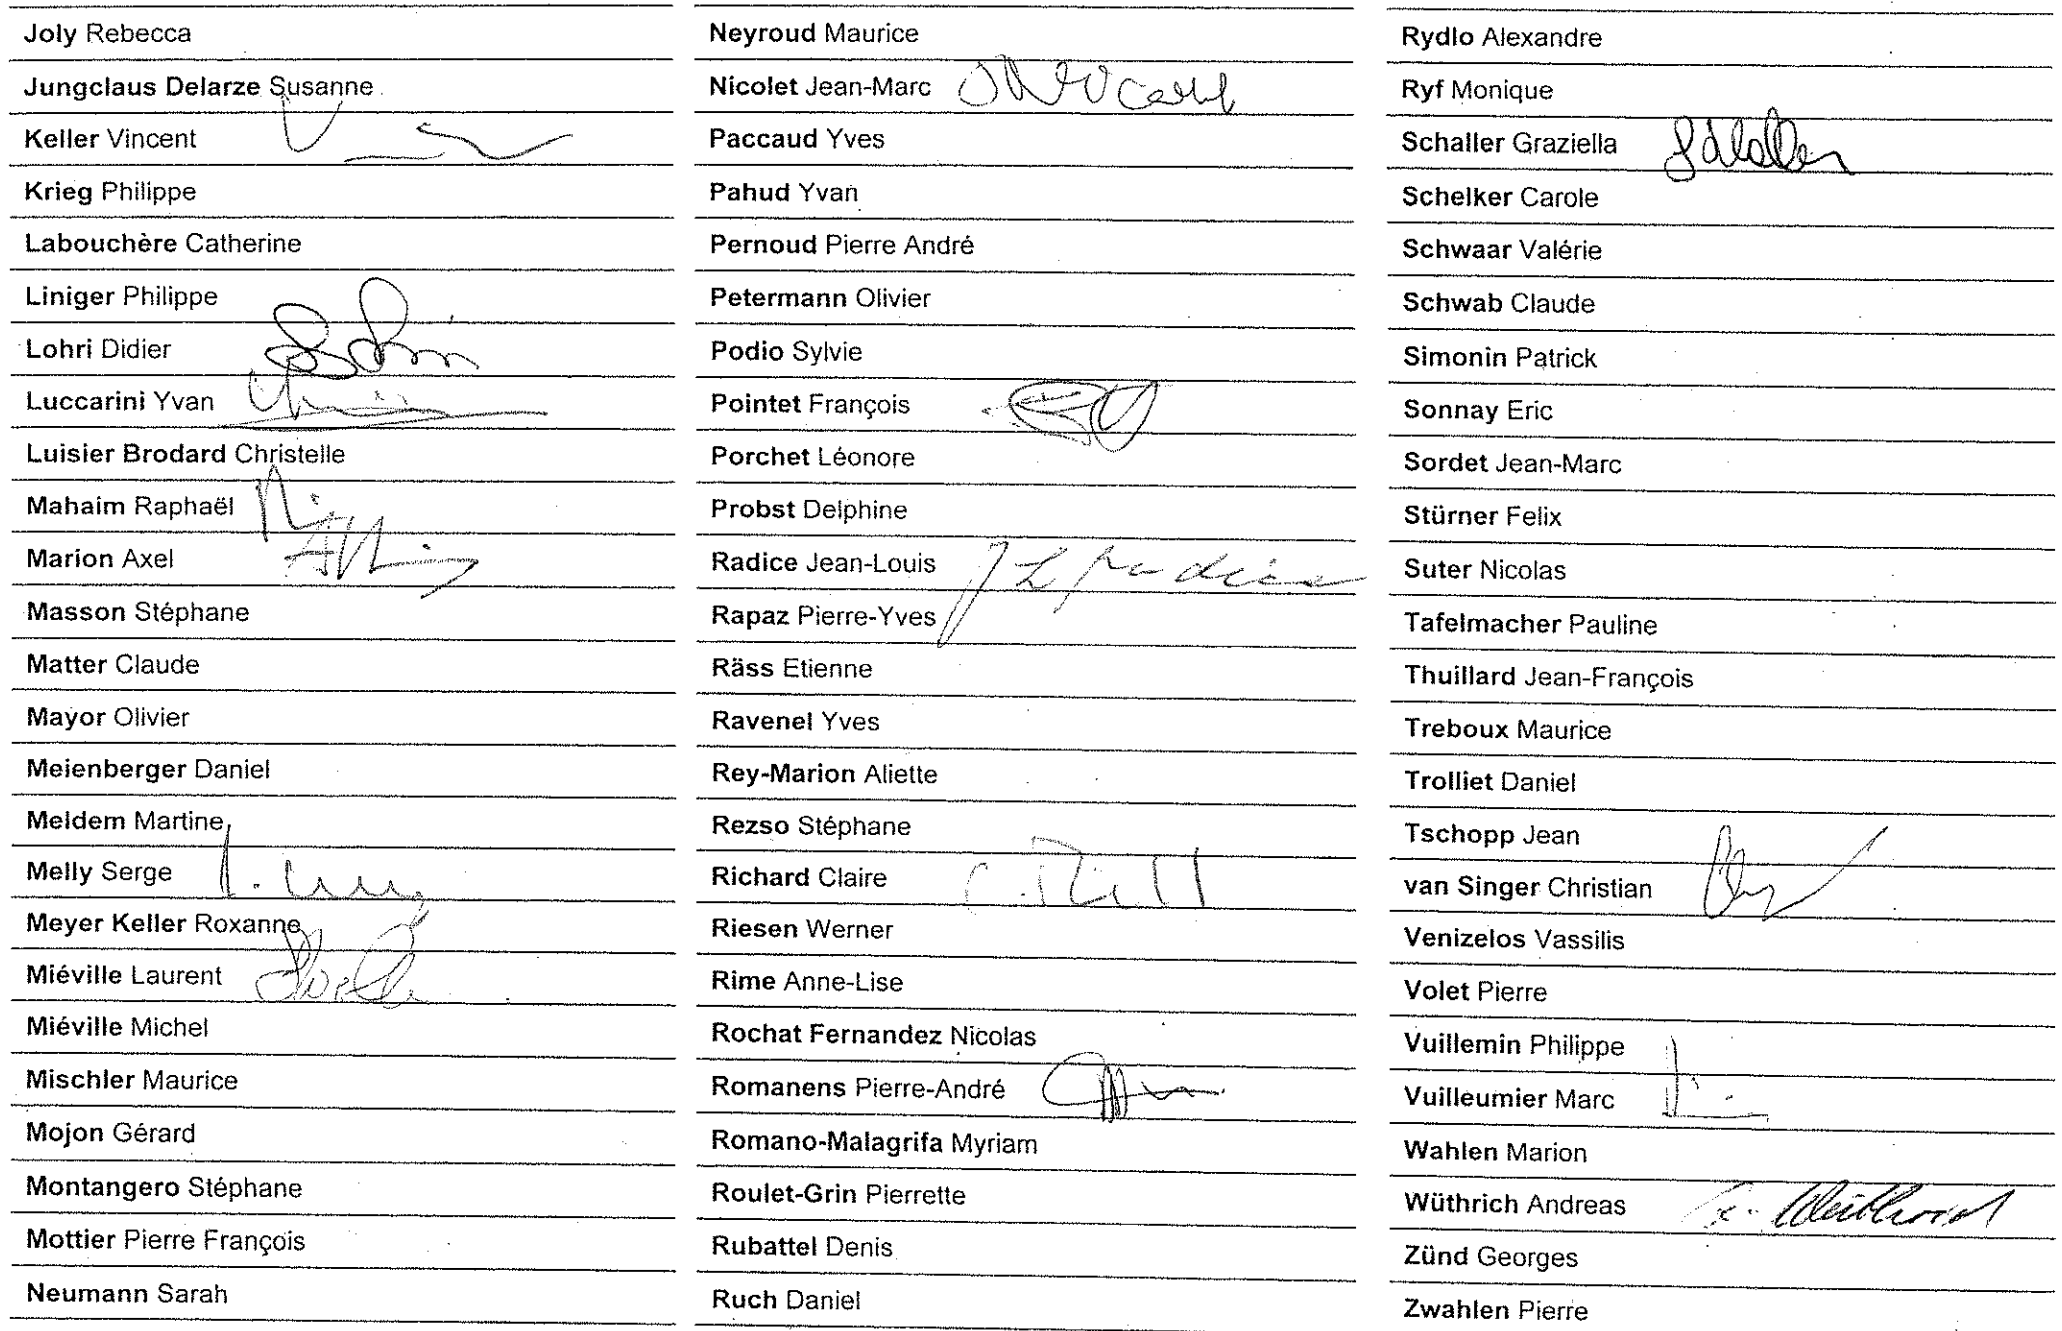 Joly Rebecca
Jungclaus Delarze Susanne
Keller Vincent
Krieg Philippe
Labouchère Catherine
Liniger Philippe
Lohri Didier
Luccarini Yvan
Luisier Brodard Christelle
Mahaim Raphaël
Marion Axel
Masson Stéphane
Matter Claude
Mayor Olivier
Meienberger Daniel
Meldem Martine
Melly Serge
Meyer Keller Roxanne
Miéville Laurent
Miéville Michel
Mischler Maurice
Mojon Gérard
Montangero Stéphane
Mottier Pierre François
Neumann Sarah
Neyroud Maurice
Nicolet Jean-Marc
Paccaud Yves
Pahud Yvan
Pernoud Pierre André
Petermann Olivier
Podio Sylvie
Pointet François
Porchet Léonore
Probst Delphine
Radice Jean-Louis J L Radice
Rapaz Pierre-Yves
Räss Etienne
Ravenel Yves
Rey-Marion Aliette
Rezso Stéphane
Richard Claire
Riesen Werner
Rime Anne-Lise
Rochat Fernandez Nicolas
Romanens Pierre-André
Romano-Malagrifa Myriam
Roulet-Grin Pierrette
Rubattel Denis
Ruch Daniel
Rydlo Alexandre
Ryf Monique
Schaller Graziella
Schelker Carole
Schwaar Valérie
Schwab Claude
Simonin Patrick
Sonnay Eric
Sordet Jean-Marc
Stürner Felix
Suter Nicolas
Tafelmacher Pauline
Thuillard Jean-François
Treboux Maurice
Trolliet Daniel
Tschopp Jean
van Singer Christian
Venizelos Vassilis
Volet Pierre
Vuillemin Philippe
Vuilleumier Marc
Wahlen Marion
Wüthrich Andreas
Zünd Georges
Zwahlen Pierre